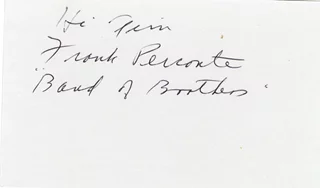 Hi Tim
Frank Perconte
"Band of Brothers"